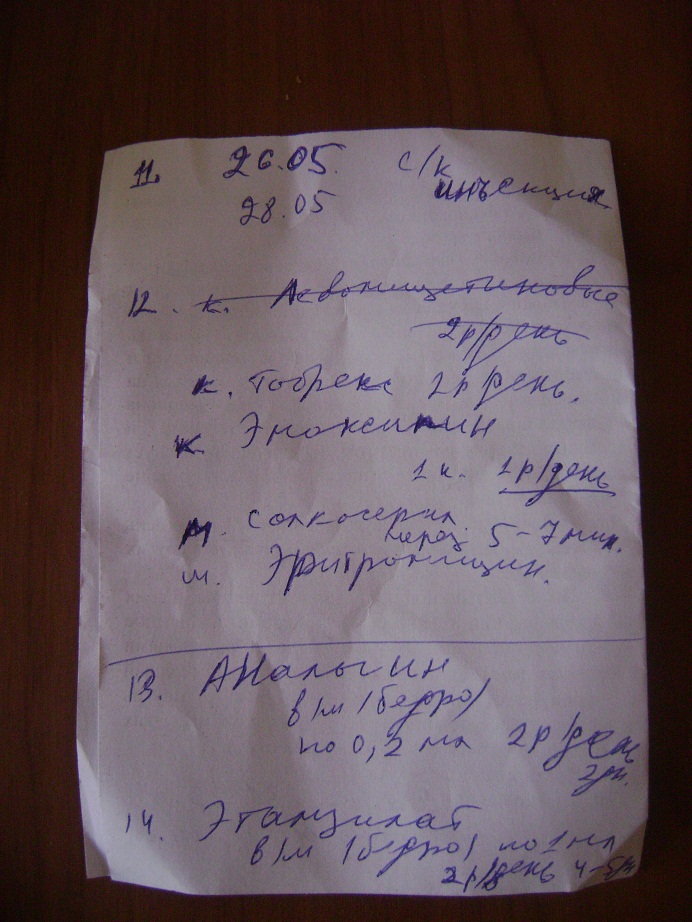 11. 26.05. с/к
инъекция
28.05
12. к. Левомицетиновые
2р/день
к. Тобрекс 2р/день.
к Эмоксипин
1 к. 1р/день
м. солкосерил
через 5-7 мин.
м. Эритромицин.
13. Анальгин
в/м (бедро)
по 0,2 мл 2р/день
14. Этамзилат
в/м (бедро) по 1 мл
2р/день